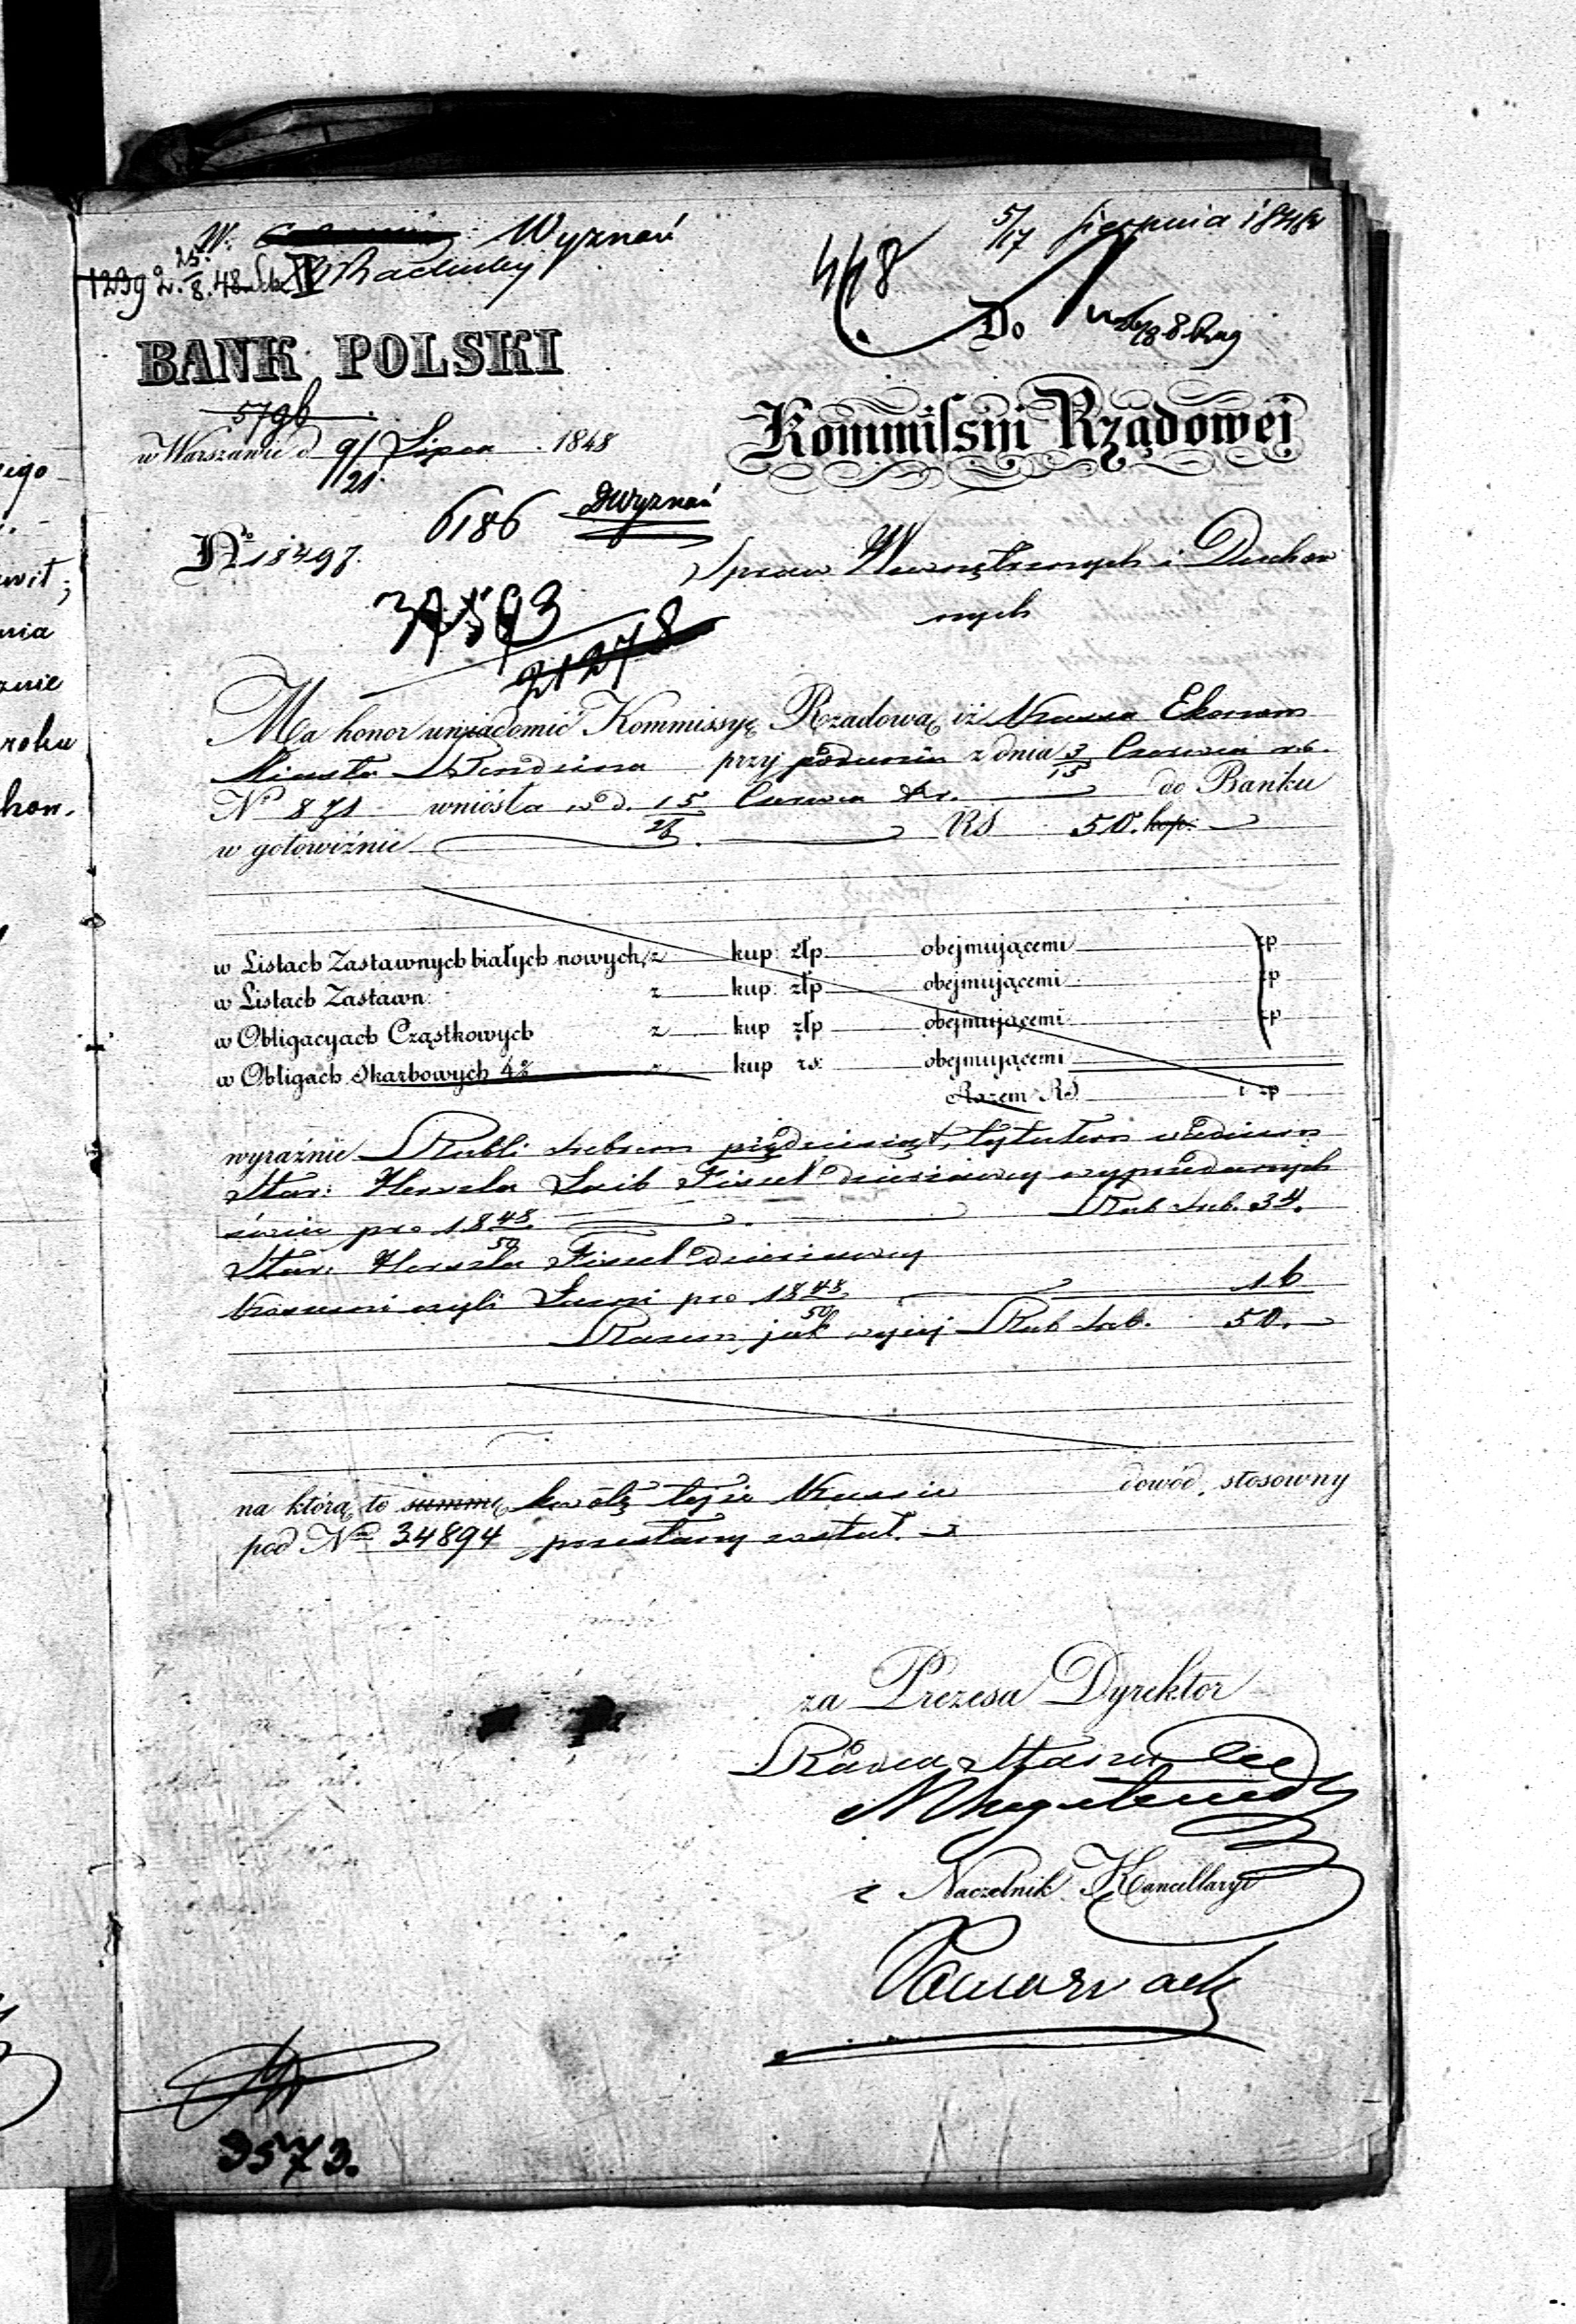 W. Wyznań
5/17 sierpnia 1848
1239 2. 25/8. 48 IV Rachuby
448
Do
BANK POLSKI
5796
Kommissyi Rządowej
w Warszawie d 9/21 Lipca 1848
6186 DWyznań
No 18497.
Spraw Wewnętrznych i Duchow
nych
37593
21278
Ma honor uwiadomić Kommissyę Rządową, iż Kassa Ekonom
Miasta Będzina przy podaniu z dnia 3/15 Czerwca r.b.
No 871 wniosła w d. 15/28 Czerwca r. do Banku
w gotowiźnie RS 50. kop.
w Listach Zastawnych białych nowych, z kup: złp. obejmującemi zp
w Listach Zastawn: z kup: złp. obejmującemi zp
w Obligacyach Cząstkowych z kup złp obejmującemi zp
w Obligach Skarbowych 4% z kup rs: obejmującemi
Razem RS. i zp
wyraźnie Rubli srebrem pięćdziesiąt, tytułem wadium
Star: Herszla Laib dzierżawcy
pro 1848/50 Rub sr. 34.
Star: Herszla dzierżawcy
czyli Łaźni pro 1848/50 16
Razem jak wyżej Rub Srb. 50.
na którą to summę kwotę tejże Kassie dowód stosowny
pod No 34894 przesłany został.
za Prezesa Dyrektor
Radca Stanu
Naczelnik Kancellaryi
3573.